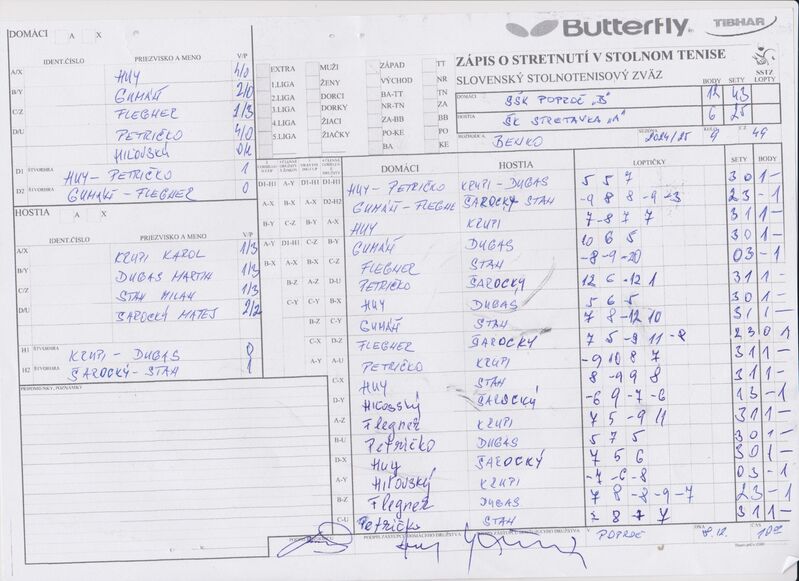 DOMÁCI A X
IDENT.ČÍSLO PRIEZVISKO A MENO V/P
A/X HUY 4/0
B/Y GUMÁŇ 2/0
C/Z FLEGNER 1/3
D/U PETRIČKO 4/0
HIĽOVSKÝ
D1 ŠTVORHRA HUY - PETRIČKO 1
D2 ŠTVORHRA GUMÁŇ - FLEGNER 0
HOSTIA A X
IDENT.ČÍSLO PRIEZVISKO A MENO V/P
A/X KRUPI KAROL 1/3
B/Y DUGAS MARTIN 1/3
C/Z STAŇ MILAN 1/3
D/U ŠAROCKÝ MATEJ 2/2
H1 ŠTVORHRA KRUPI - DUGAS 0
H2 ŠTVORHRA ŠAROCKÝ - STAŇ 1
PRIPOMIENKY, POZNÁMKY
Butterfly TIBHAR
ZÁPIS O STRETNUTÍ V STOLNOM TENISE
SLOVENSKÝ STOLNOTENISOVÝ ZVÄZ
SSTZ
EXTRA MUŽI ZÁPAD TT
1.LIGA ŽENY VÝCHOD NR
2.LIGA DORCI BA-TT TN
3.LIGA DORKY NR-TN ZA
4.LIGA ŽIACI ZA-BB BB
5.LIGA ŽIAČKY PO-KE PO
BA KE
BODY SETY LOPTY
DOMÁCI ŠŠK POPROČ "B" 12 43
HOSTIA ŠK STRETAVKA "A" 6 25
ROZHODCA BENKO SEZÓNA 2024/25 KOLO 9 Č.Z. 49
DOMÁCI HOSTIA LOPTIČKY SETY BODY
D1-H1 A-Y D1-H1 D1-H1 HUY - PETRIČKO KRUPI - DUGAS 5 5 7 3 0 1 -
A-X B-X A-X D2-H2 GUMÁŇ - FLEGNER ŠAROCKÝ STAŇ -9 8 8 -9 -3 2 3 - 1
B-Y C-Z B-Y A-X HUY KRUPI 7 -8 7 7 3 1 1 -
A-Y D1-H1 C-Z B-Y GUMÁŇ DUGAS 10 6 5 3 0 1 -
B-X A-X B-X C-Z FLEGNER STAŇ -8 -9 -20 0 3 - 1
B-Y A-Z D-U PETRIČKO ŠAROCKÝ 12 6 -12 1 3 1 1 -
C-Y B-X HUY DUGAS 5 6 5 3 0 1 -
B-Z C-Y GUMÁŇ STAŇ 7 8 -12 10 3 1 1 -
C-X D-Z FLEGNER ŠAROCKÝ 7 5 -9 -11 -8 2 3 0 1
A-Y A-U PETRIČKO KRUPI -9 10 8 7 3 1 1 -
C-X HUY STAŇ 8 -9 9 8 3 1 1 -
D-Y Hiľovský ŠAROCKÝ -6 9 -7 -6 1 3 - 1
A-Z Flegner KRUPI 7 5 -9 11 3 1 1 -
B-U Petričko DUGAS 5 7 5 3 0 1 -
D-X HUY ŠAROCKÝ 7 5 6 3 0 1 -
A-Y HIĽOVSKÝ KRUPI -7 -6 -8 0 3 - 1
B-Z Flegner DUGAS 7 8 -8 -9 -7 2 3 - 1
C-U Petričko STAŇ 3 1 1 -
PODPIS ZÁSTUPCU DOMÁCEHO DRUŽSTVA
V POPROČ DŇA 8.12. ČAS 10:00